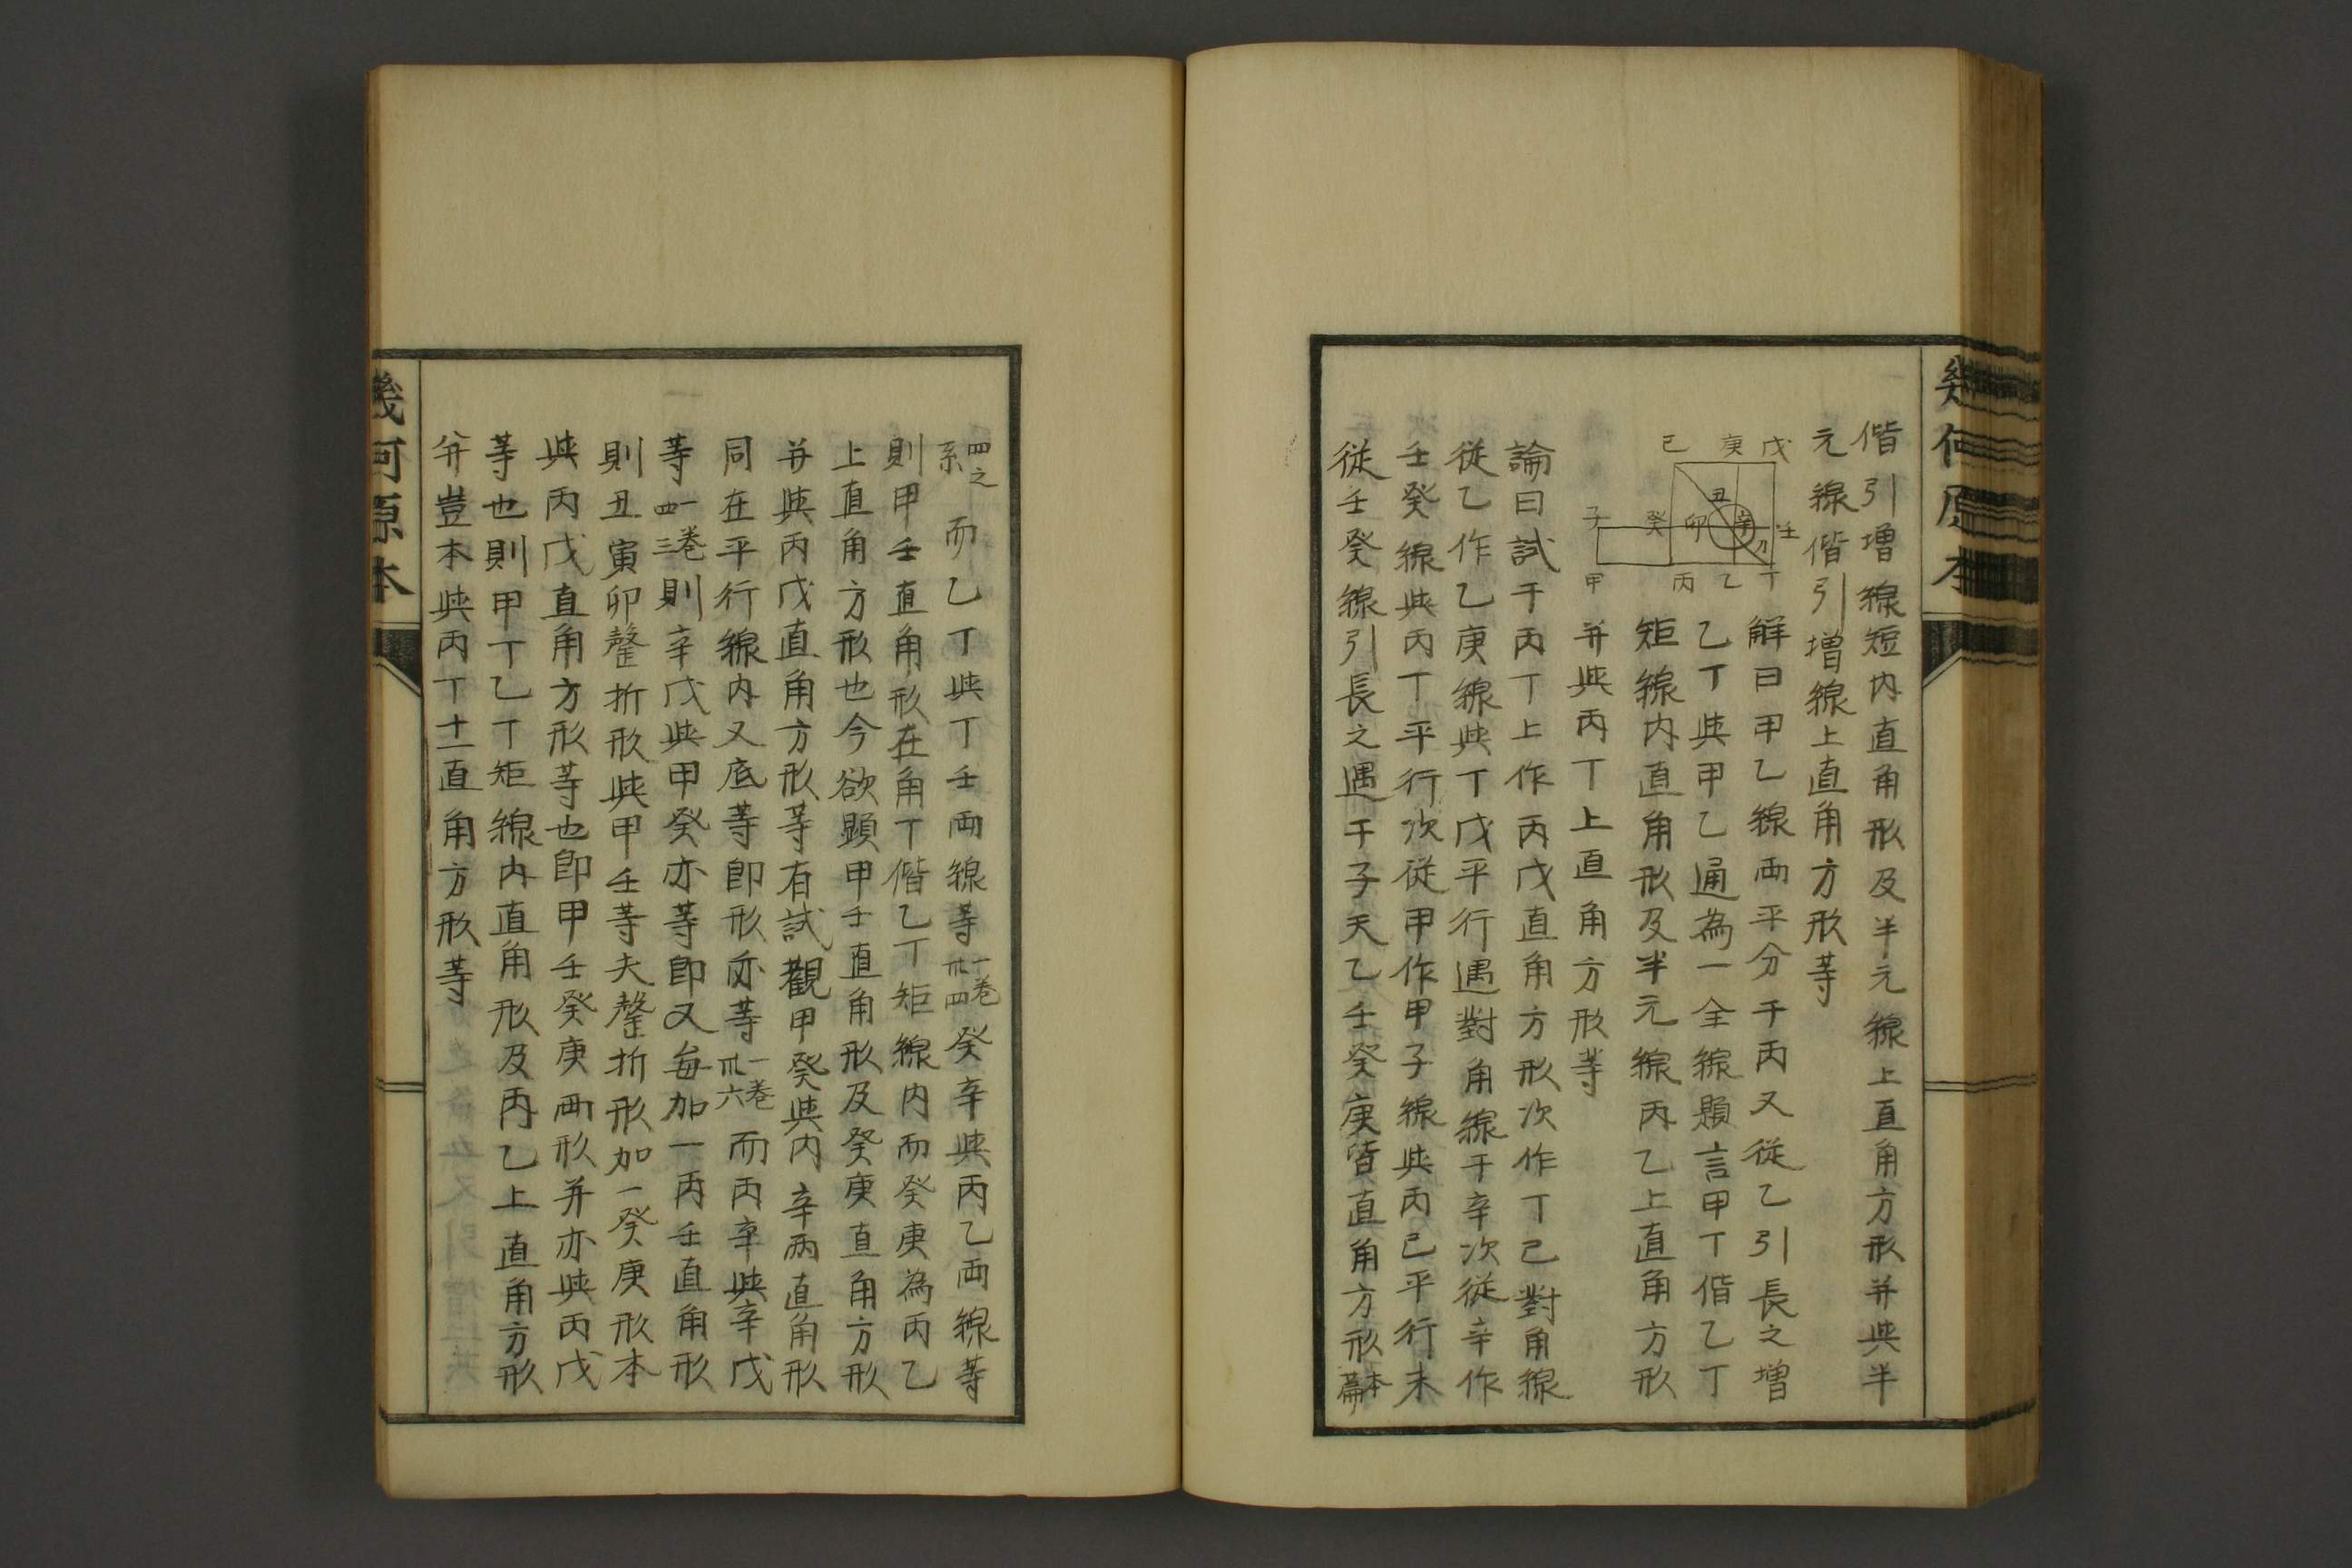 幾何原本
偕引增線短内直角形及半元線上直角方形并與半
元線偕引增線上直角方形等
己 庚 戊
丑
子 癸 卯 辛 壬
甲 丙 乙 丁
解曰甲乙線兩平分于丙又從乙引長之增
乙丁與甲乙通為一全線題言甲丁偕乙丁
矩線内直角形及半元線丙乙上直角方形
并與丙丁上直角方形等
論曰試于丙丁上作丙戊直角方形次作丁己對角線
從乙作乙庚線與丁戊平行遇對角線于辛次從辛作
壬癸線與丙丁平行次從甲作甲子線與丙己平行末
從壬癸線引長之遇于子夫乙壬癸庚皆直角方形本篇
四之系而乙丁與丁壬兩線等一卷卅四癸辛與丙乙兩線等
則甲壬直角形在角丁偕乙丁矩線内而癸庚為丙乙
上直角方形也今欲顯甲壬直角形及癸庚直角方形
并與丙戊直角方形等有試觀甲癸與内辛兩直角形
同在平行線内又底等即形亦等一卷卅六而丙辛與辛戊
等一卷四三則辛戊與甲癸亦等即又每加一丙壬直角形
則丑寅卯罄折形與甲壬等夫罄折形加一癸庚形本
與丙戊直角方形等也即甲壬癸庚兩形并亦與丙戊
等也則甲丁乙丁矩線内直角形及丙乙上直角方形
并豈本與丙丁十一直角方形等
幾何原本